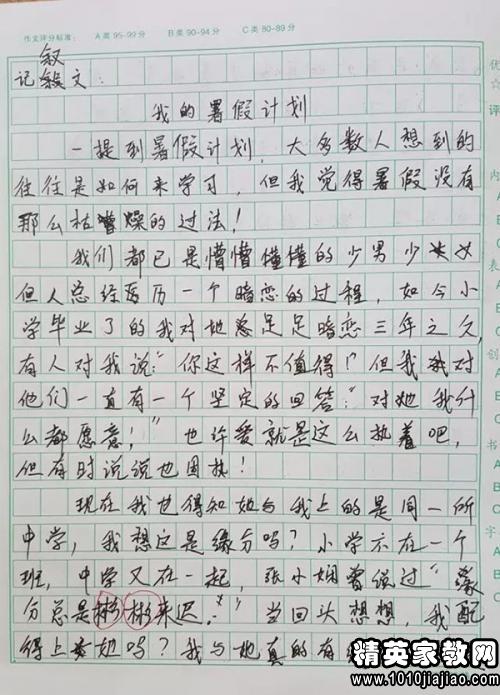 作文评分标准： A类95-99分 B类90-94分 C类80-89分
优
☆
叙
记 文：
评
我的暑假计划
一提到暑假计划，大多数人想到的
往往是如何来学习，但我觉得暑假没有
内
那么枯燥的过法！
我们都已是懵懵懂懂的少男少女
表
但人总经历一个暗恋的过程，如今小
学毕业了的我对她足足暗恋三年之久，
有人对我说：“你这样不值得！”但我对
创
他们一直有一个坚定的回答：“对她我什
么都愿意！”也许爱就是这么执着吧，
书
但有时说说也固执！
现在我也得知她与我上的是同一所
中学，我想这是缘分吗？小学不在一个
字
班，中学又在一起，张小娴曾说过“缘
分总是彬彬来迟。”当回头想想，我配
得上 她吗？我与她真的有
精英家教网
www.1010jiajiao.com